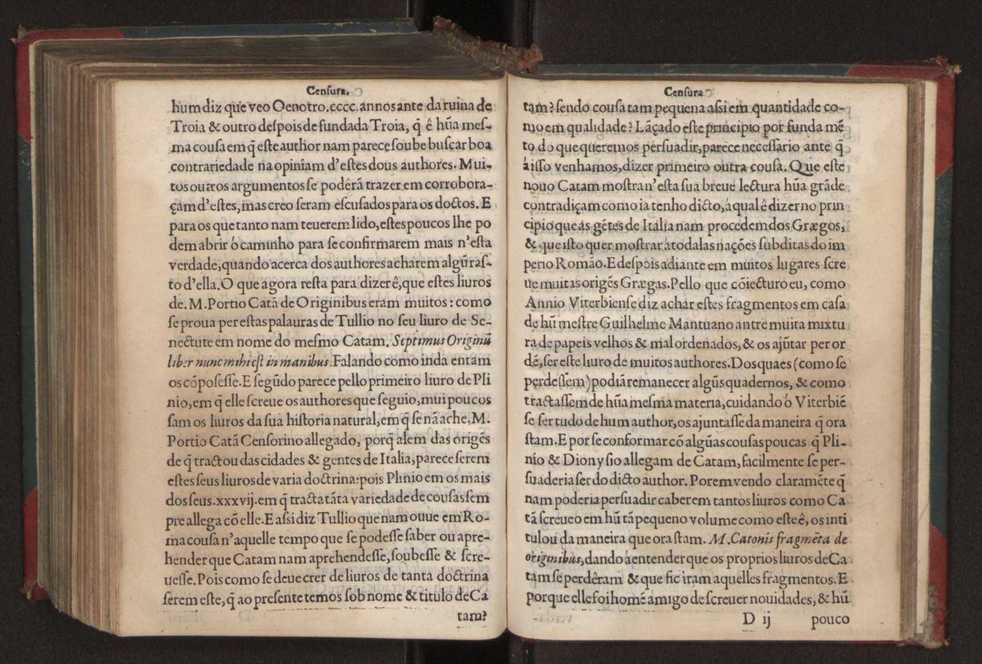 Censura.
hum diz que veo Oenotro.cccc.annos ante da ruina de
Troia & outro despois de fundada Troia, q̃ ê hũa mes-
ma cousa em q̃ este author nam parece soube buscar boa
contrariedade na opiniam d'estes dous authores. Mui-
tos outros argumentos se poderã trazer em corrobora-
çam d'estes, mas creo seram escusados para os doctos. E
para os que tanto nam teuerem lido, estes poucos lhe po
dem abrir o caminho para se confirmarem mais n'esta
verdade, quando acerca dos authores acharem algũ ras-
to d'ella. O que agora resta para dizer ê, que estes liuros
de. M. Portio Catã de Originibus eram muitos: como
se proua per estas palauras de Tullio no seu liuro de Se-
nectute em nome do mesmo Catam. Septimus Originũ
liber nunc mihi est in manibus. Falando como inda entam
os cõposesse. E segũdo parece pello primeiro liuro de Pli
nio, em q̃ elle screue os authores que seguio, mui poucos
sam os liuros da sua historia natural, em q̃ se nã ache. M.
Portio Catã Censorino allegado, porq̃ alem das origẽs
de q̃ tractou das cidades & gentes de Italia, parece serem
estes seus liuros de varia doctrina: pois Plinio em os mais
dos seus.xxxvij.em q̃ tracta tãta variedade de cousas sem
pre allega cõ elle. E assi diz Tullio que nam ouue em Ro-
ma cousa n'aquelle tempo que se podesse saber ou apre-
hender que Catam nam aprehendesse, soubesse & scre-
uesse. Pois como se deue crer de liuros de tanta doctrina
serem este, q̃ ao presente temos sob nome & titulo de Ca
tam?
Censura
tam? sendo cousa tam pequena assi em quantidade co-
mo em qualidade? Lãçado este principio por funda mẽ
to do que queremos persuadir, parece necessario ante q̃
à isso venhamos, dizer primeiro outra cousa. Que este
nouo Catam mostra n'esta sua breue lectura hũa grãde
contradiçam como ia tenho dicto, à qual ê dizer no prin
cipio que as gẽtes de Italia nam procedem dos Græegos,
& que isto quer mostrar à todalas nações subditas do im
perio Romão. E despois adiante em muitos lugares scre
ue muitas origẽs Grægas. Pello que cõiecturo eu, como
Annio Viterbiense diz achar estes fragmentos em casa
de hũ mestre Guilhelme Mantuano antre muita mixtu
ra de papeis velhos & mal ordenados, & os ajũtar per or
dẽ, ser este liuro de muitos authores. Dos quaes (como se
perdessem) podiã remanecer algũs quadernos, & como
tractassem de hũa mesma materia, cuidando o Viterbiẽ
se ser tudo de hum author, os ajuntasse da maneira q̃ ora
stam. E por se conformar cõ algũas cousas poucas q̃ Pli-
nio & Dionysio allegam de Catam, facilmente se per-
suaderia ser do dicto author. Porem vendo claramẽte q̃
nam poderia persuadir caberem tantos liuros como Ca
tã screueo em hũ tã pequeno volume como este ê, os inti
tulou da maneira que ora stam. M. Catonis fragmẽta de
originibus, dando à entender que os proprios liuros de Ca
tam se perdêram & que ficâram aquelles fragmentos. E
porque elle foi homẽ amigo de screuer nouidades, & hũ
D ij pouco